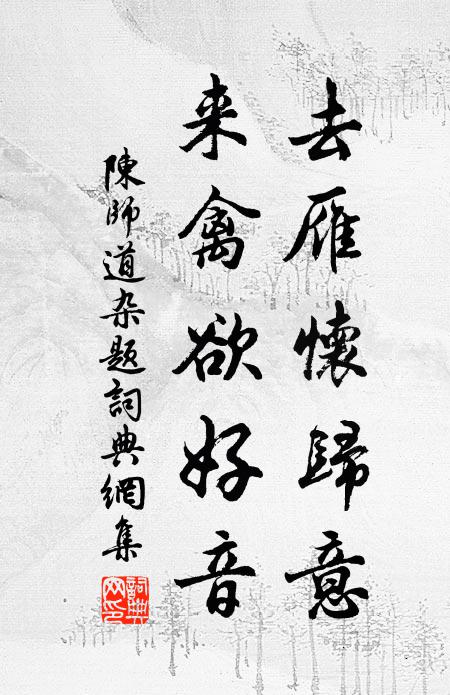 去雁懷歸意
来禽欲好音
陳師道杂题詞典網集
詞典网印